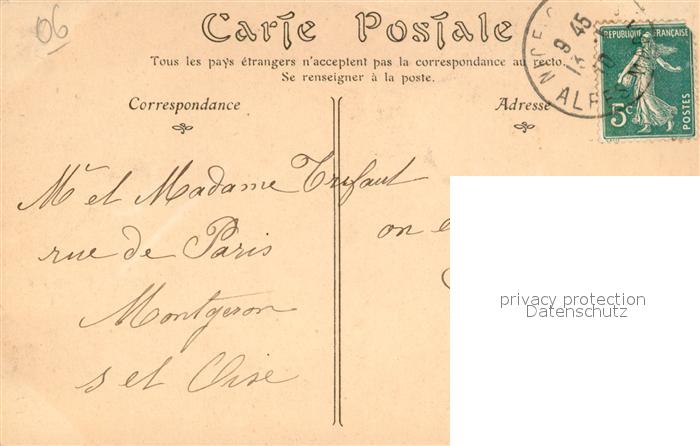 06
Carte Postale
Tous les pays étrangers n'acceptent pas la correspondance au recto.
Se renseigner à la poste.
REPUBLIQUE FRANÇAISE
5c
POSTES
9 45
ALPES M
Correspondance
Adresse
Mr et Madame Trifaut
rue de Paris
Montgeron
s et Oise
on
privacy protection
Datenschutz